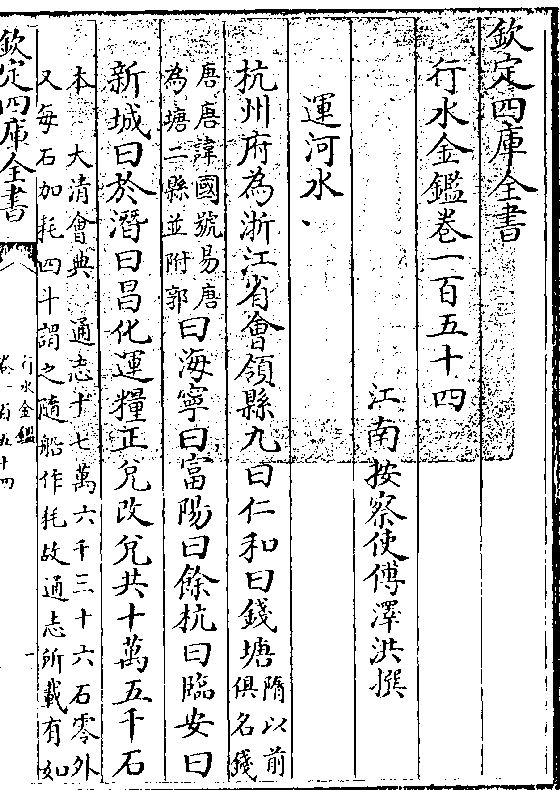 欽定四庫全書
行水金鑑卷一百五十四
江南按察使傅澤洪撰
運河水
杭州府為浙江省會領縣九曰仁和曰錢塘隋以前俱名錢
唐唐諱國號易唐為塘二縣並附郭曰海寧曰富陽曰餘杭曰臨安曰
新城曰於潛曰昌化運糧正兌改兌共十萬五千石
本大清會典通志十七萬六千三十六石零外
又每石加耗四斗謂之隨船作耗故通志所載有如
欽定四庫全書
行水金鑑
卷一百五十四
一